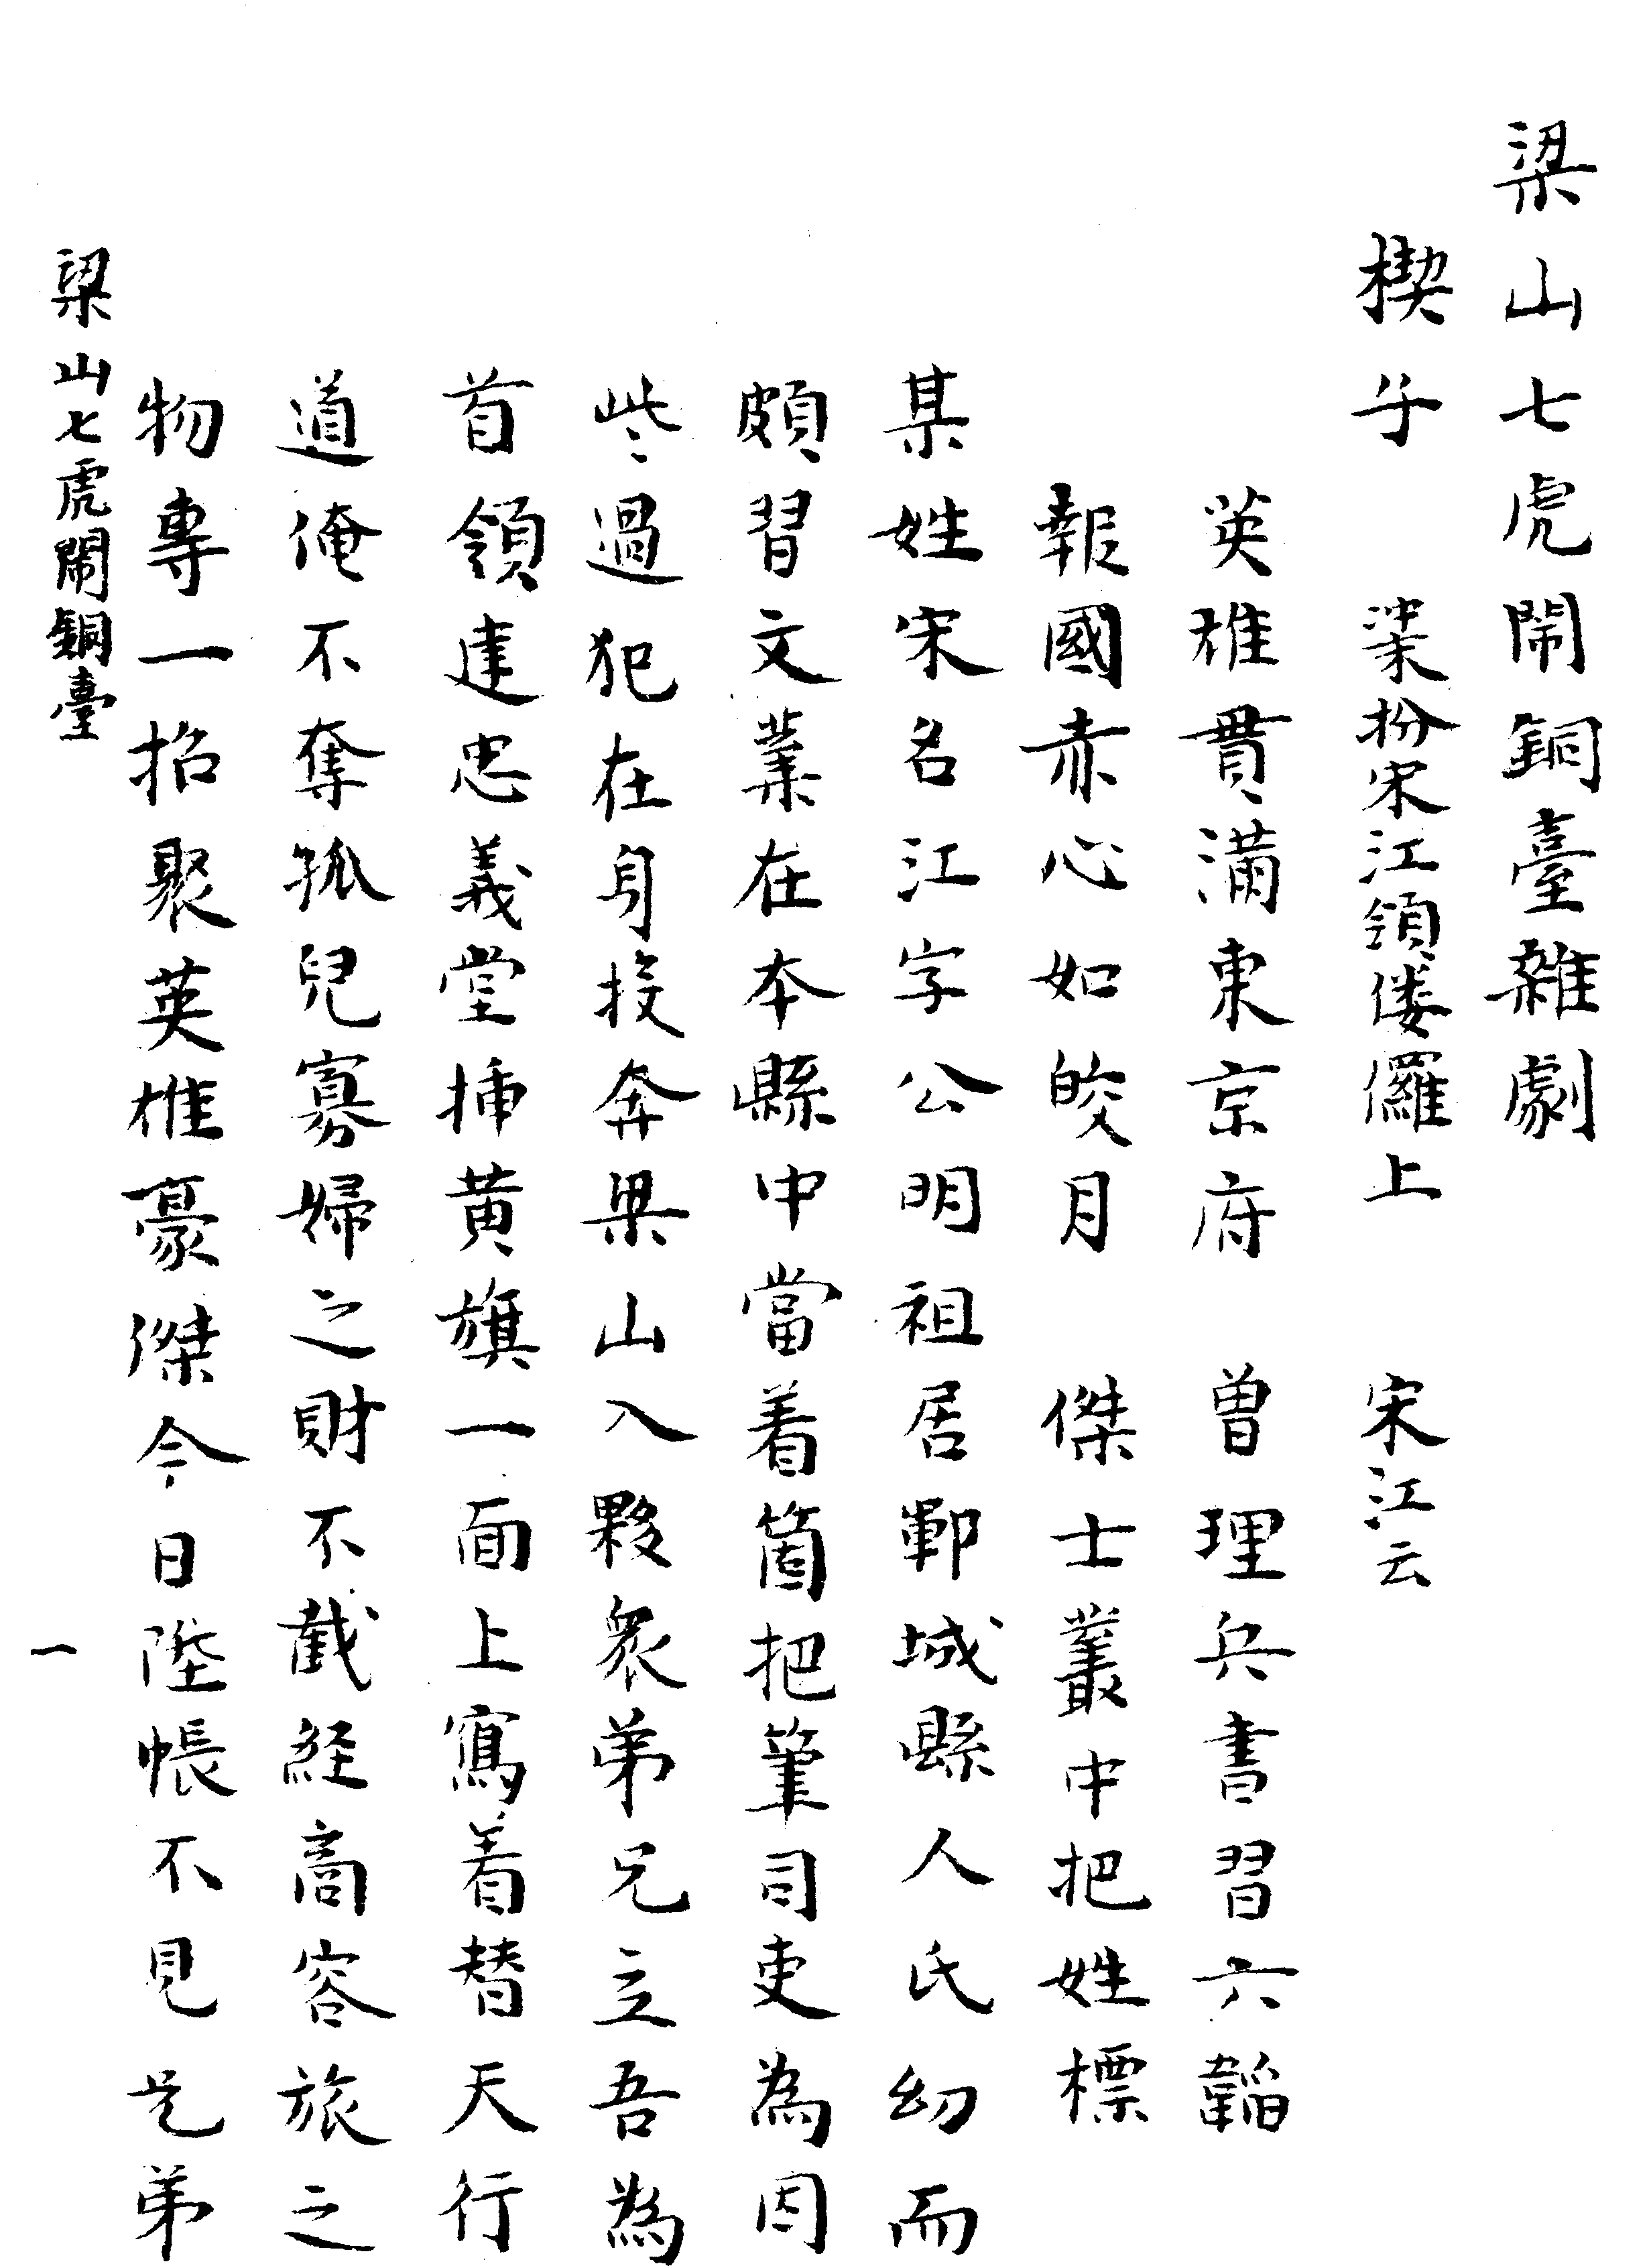 梁山七虎鬧銅臺雜劇
楔子　冲末扮宋江領僂儸上　宋江云
英雄貫滿東京府　曾理兵書習六韜
報國赤心如皎月　傑士叢中把姓標
某姓宋名江字公明祖居鄆城縣人氏幼而
頗習文業在本縣中當着箇把筆司吏為因
些過犯在身投奔梁山入夥衆弟兄立吾為
首領建忠義堂挿黄旗一面上寫着替天行
道俺不奪孤兒寡婦之財不截経商客旅之
物專一招聚英雄豪傑今日陞帳不見兄弟
梁山七虎鬧銅臺
一